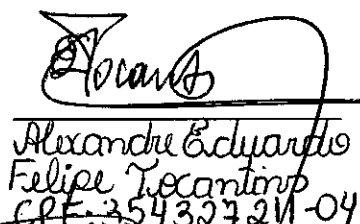 Tocants
Alexandre Eduardo
Felipe Tocantins
CPF: 354327211-04